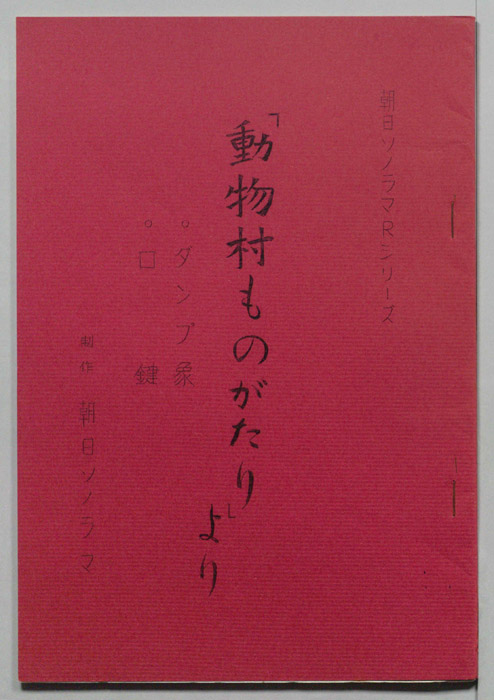 朝日ソノラマRシリーズ
「動物村ものがたり」より
○ダンプ象
○口 鍵
制作 朝日ソノラマ